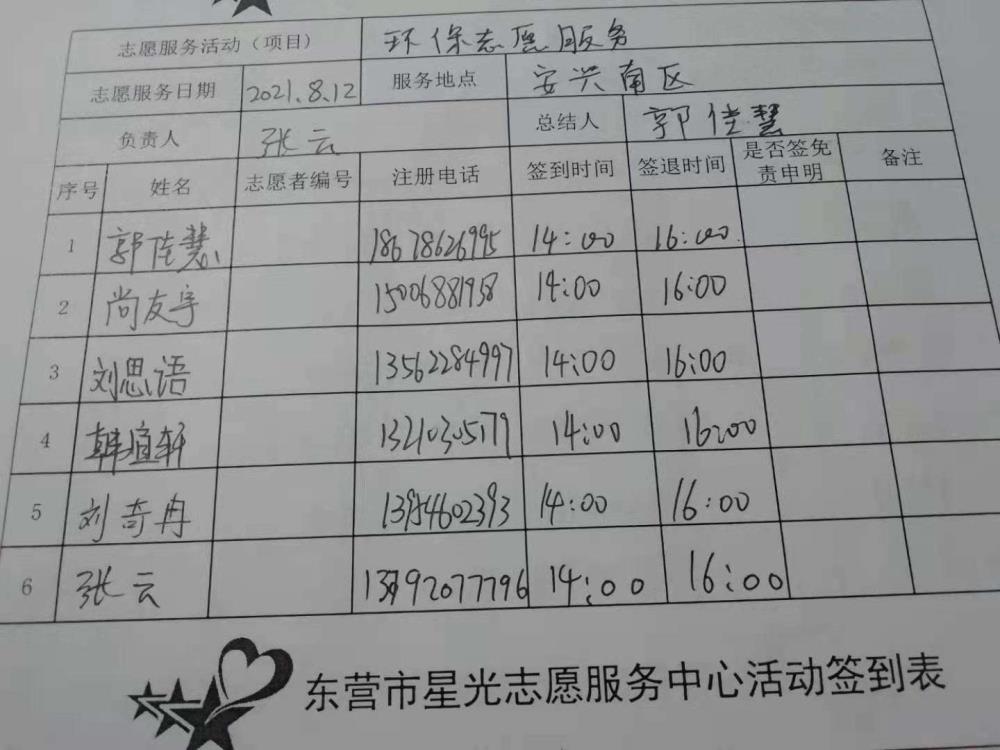 志愿服务活动（项目） 环保志愿服务
志愿服务日期 2021.8.12 服务地点 安兴南区
负责人 张云 总结人 郭佳慧
序号 姓名 志愿者编号 注册电话 签到时间 签退时间 是否签免责申明 备注
1 郭佳慧 18678626995 14:00 16:00
2 尚友宇 15006881958 14:00 16:00
3 刘思语 13562284997 14:00 16:00
4 韩萱轩 13210305179 14:00 16:00
5 刘奇冉 13954602393 14:00 16:00
6 张云 14:00 16:00
东营市星光志愿服务中心活动签到表